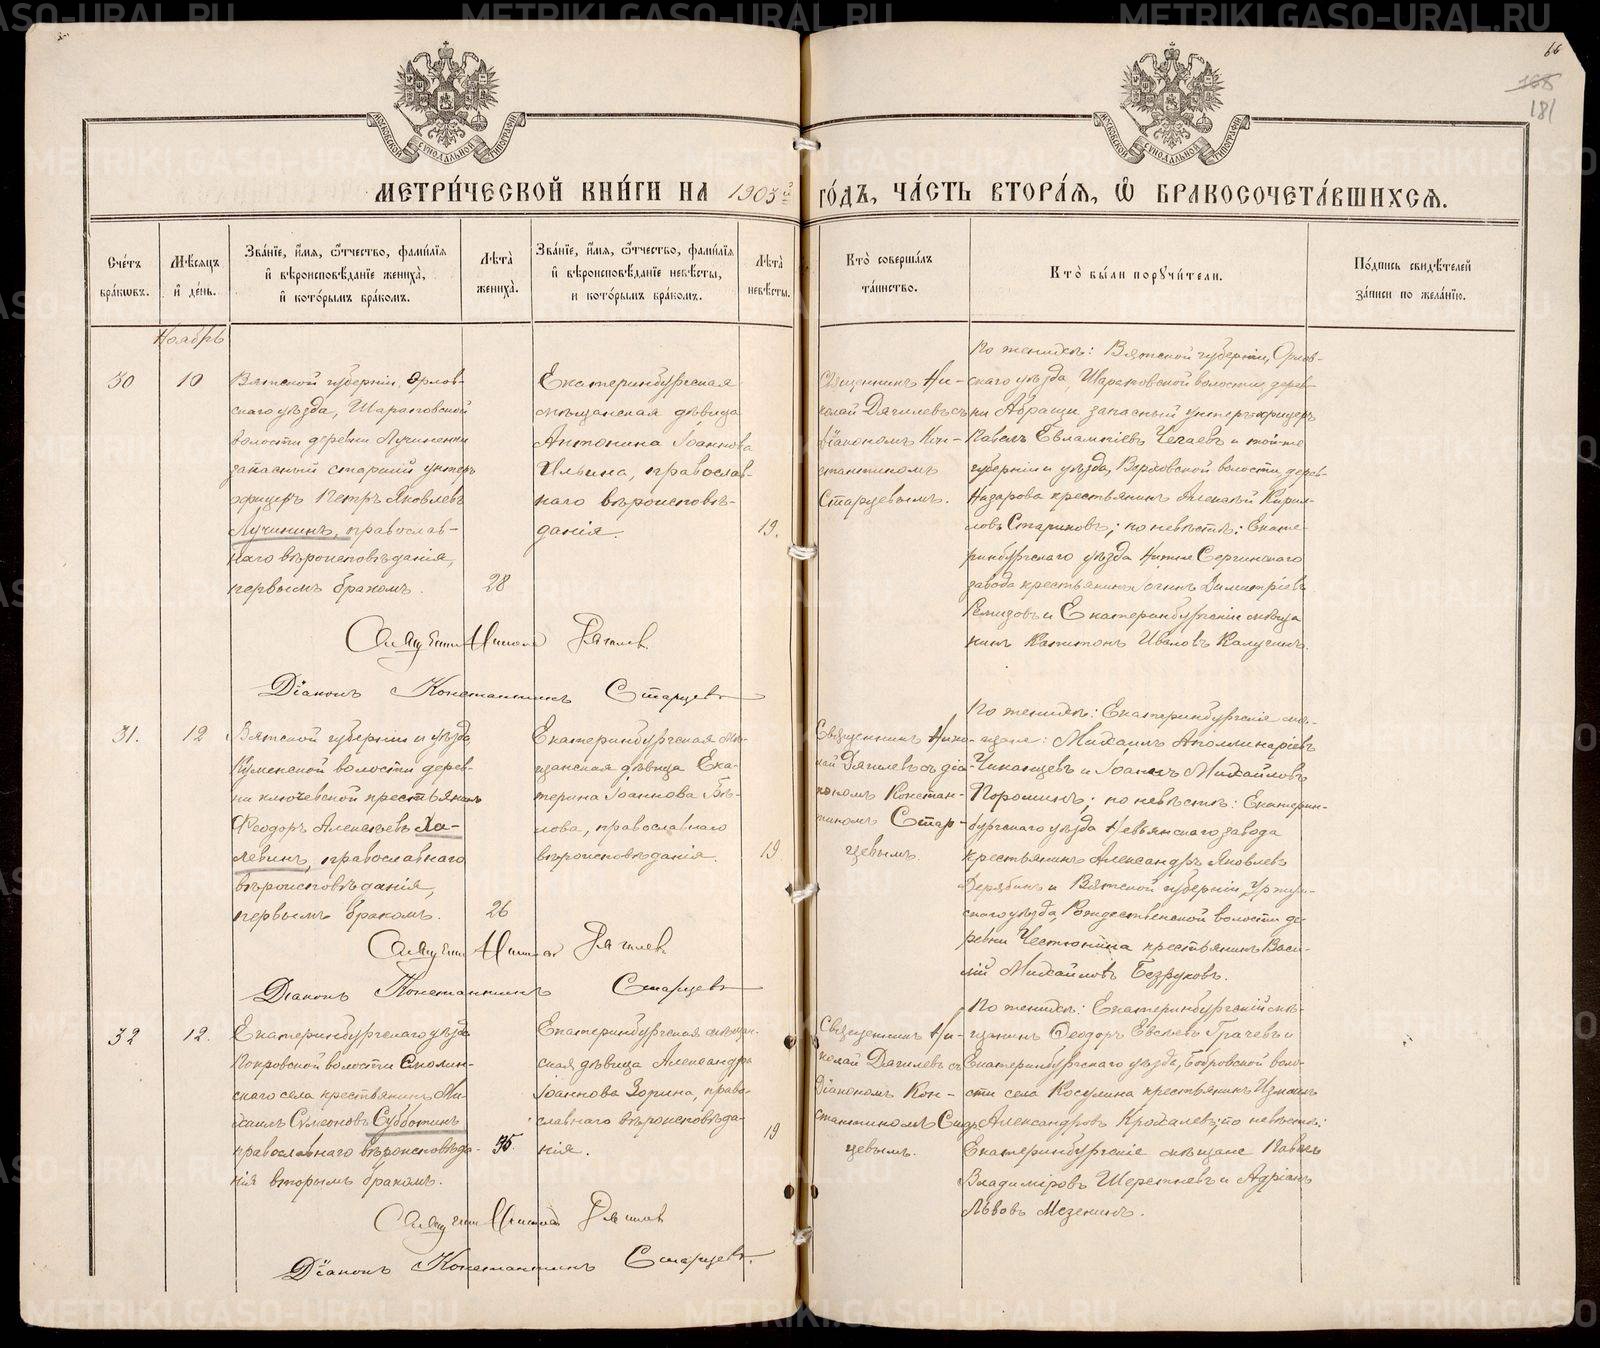 66
165
181
МОСКОВСКОЙ СѴНОДАЛЬНОЙ ТИПОГРАФІИ
МОСКОВСКОЙ СѴНОДАЛЬНОЙ ТИПОГРАФІИ
МЕТРИ́ЧЕСКОЙ КНИ́ГИ НА 1903й ГО́ДЪ, ЧА́СТЬ ВТОРА́Я, Ѽ БРАКОСОЧЕТА́ВШИХСЯ.
Сче́тъ бра́ковъ.
Мѣ́сяцъ и́ де́нь.
Зва́нїе, и́мя, ѻ҆́тчество, фами́лїя и҆ вѣроисповѣ́данїе жениха̀, и҆ кото́рымъ бра́комъ.
Лѣ́та жениха̀.
Зва́нїе, и́мя, ѻ҆́тчество, фами́лїя и҆ вѣроисповѣ́данїе невѣ́сты, и кото́рымъ бра́комъ.
Лѣ́та невѣ́сты.
Кто̀ соверша́лъ та́инство.
Кто̀ бы́ли поручи́тели.
По́дпись свидѣ́телей за́писи по жела́нїю.
Ноябрь
30
10
Вятской губерніи, Орлов-
скаго уѣзда, Шараповской
волости деревни Лучининки
запасный старшій унтеръ
офицеръ Петръ Яковлевъ
Лучининъ, православ-
наго вѣроисповѣданія,
первымъ бракомъ.
28
Екатеринбургская
мѣщанская дѣвица
Антонина Іоаннова
Ильина, православ-
наго вѣроисповѣ-
данія.
19.
Священникъ Ни-
колай Дягилевъ съ
діакономъ Кон-
стантиномъ
Старцевымъ.
По женихѣ: Вятской губерніи, Орлов-
скаго уѣзда, Шараповской волости дерев-
ни Абращи запасный унтеръ-офицеръ
Павелъ Евлампіевъ Чегаевъ и той-же
губерніи и уѣзда, Верховской волости дерев.
Назарова крестьянинъ Алексѣй Кирил-
ловъ Стариковъ; по невѣстѣ: Екате-
ринбургскаго уѣзда Нижне Сергинскаго
завода крестьянинъ Димитріевъ
Ремизовъ и Екатеринбургскій мѣща
нинъ Капитонъ Ивановъ Калугинъ.
Священникъ Николай Дягилев.
Діаконъ Константинъ Старцевъ
31.
12
Вятской губерніи и уѣзда
Куменской волости дерев-
ни ключевской крестьянинъ
Ѳеодоръ Алексѣевъ Ха-
левинъ, православнаго
вѣроисповѣданія,
первымъ бракомъ.
26
Екатеринбургская мѣ-
щанская дѣвица Ека-
терина Іоаннова Бѣ-
лова, православнаго
вѣроисповѣданія.
19
Священникъ Нико-
лай Дягилевъ съ діа-
кономъ Констан-
тиномъ Стар-
цевымъ.
По женихѣ: Екатеринбургскіе мѣ-
щане: Михаилъ Аполлинаріевъ
Чиканцевъ и Іоаннъ Михайловъ
Пороминъ; по невѣстѣ: Екатерин-
бургскаго уѣзда Невьянскаго завода
крестьянинъ Александръ Яковлевъ
Дерябинъ и Вятской губерніи, Уржум-
скаго уѣзда Рождественской волости де-
ревни Честюнина крестьянинъ Васи-
лій Михайловъ Безруковъ.
Священникъ Николай Дягилев.
Діаконъ Константинъ Старцевъ
32
12.
Екатеринбургскаго уѣзда
Покровской волости Смолин-
скаго села крестьянинъ Ми-
хаилъ Сѵмеоновъ Субботинъ
православнаго вѣроисповѣда-
нія вторымъ бракомъ.
35
Екатеринбургская мѣщан-
ская дѣвица Александра
Іоаннова Зорина, право-
славнаго вѣроисповѣда-
нія.
19
Священникъ Ни-
колай Дягилевъ съ
Діакономъ Кон-
стантиномъ Стар-
цевымъ.
По женихѣ: Екатеринбургскій мѣ-
щанинъ Ѳеодоръ Евсѣевъ Грачевъ и
Екатеринбургскаго уѣзда, Бобровской воло-
сти села Косулина крестьянинъ
Александровъ Крохалевъ; по невѣстѣ:
Екатеринбургскіе мѣщане Павелъ
Владиміровъ Шереметьевъ и Адріанъ
Львовъ Мезенинъ.
Священникъ Николай Дягилев
Діаконъ Константинъ Старцевъ.
METRIKI.GASO-URAL.RU